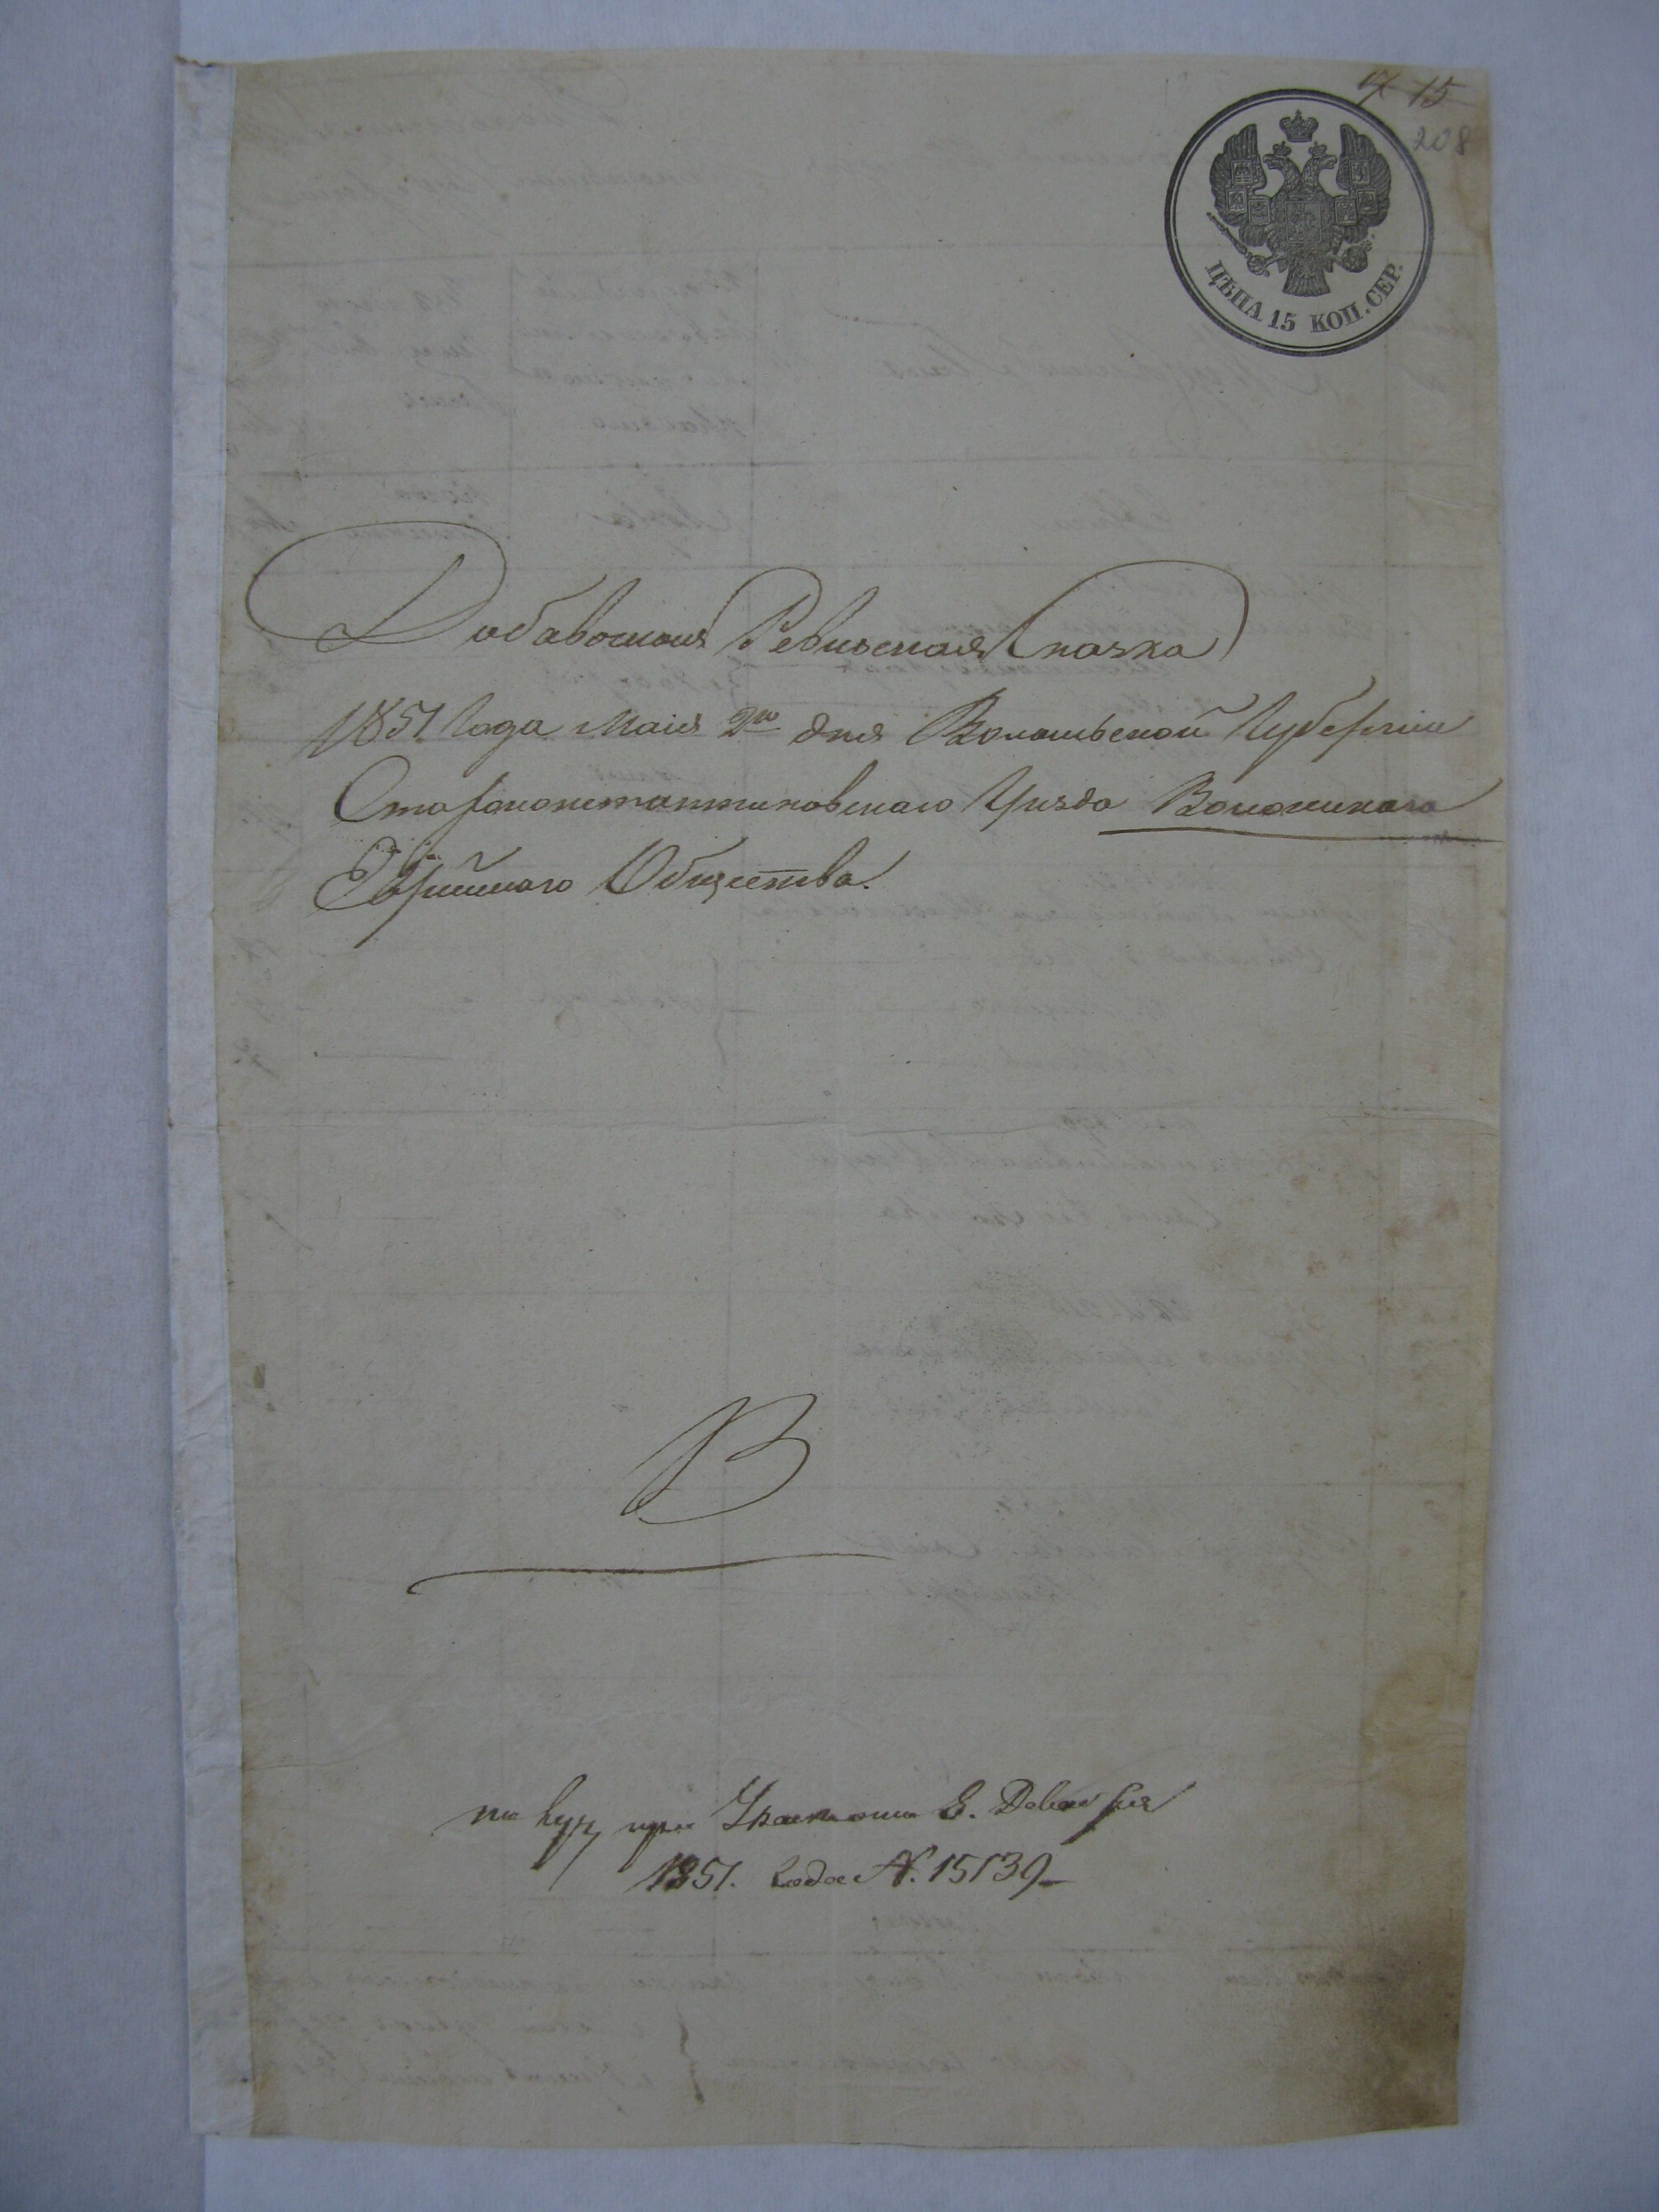 17 15
208
ЦѢНА 15 КОП. СЕР.
Добавочная Ревизская Сказка
1851 Года Маія 2го дня Волынской Губерніи
Староконстантиновскаго Уѣзда Волочискаго
Еврейскаго Общества.
В
при
1851. Года №. 15139